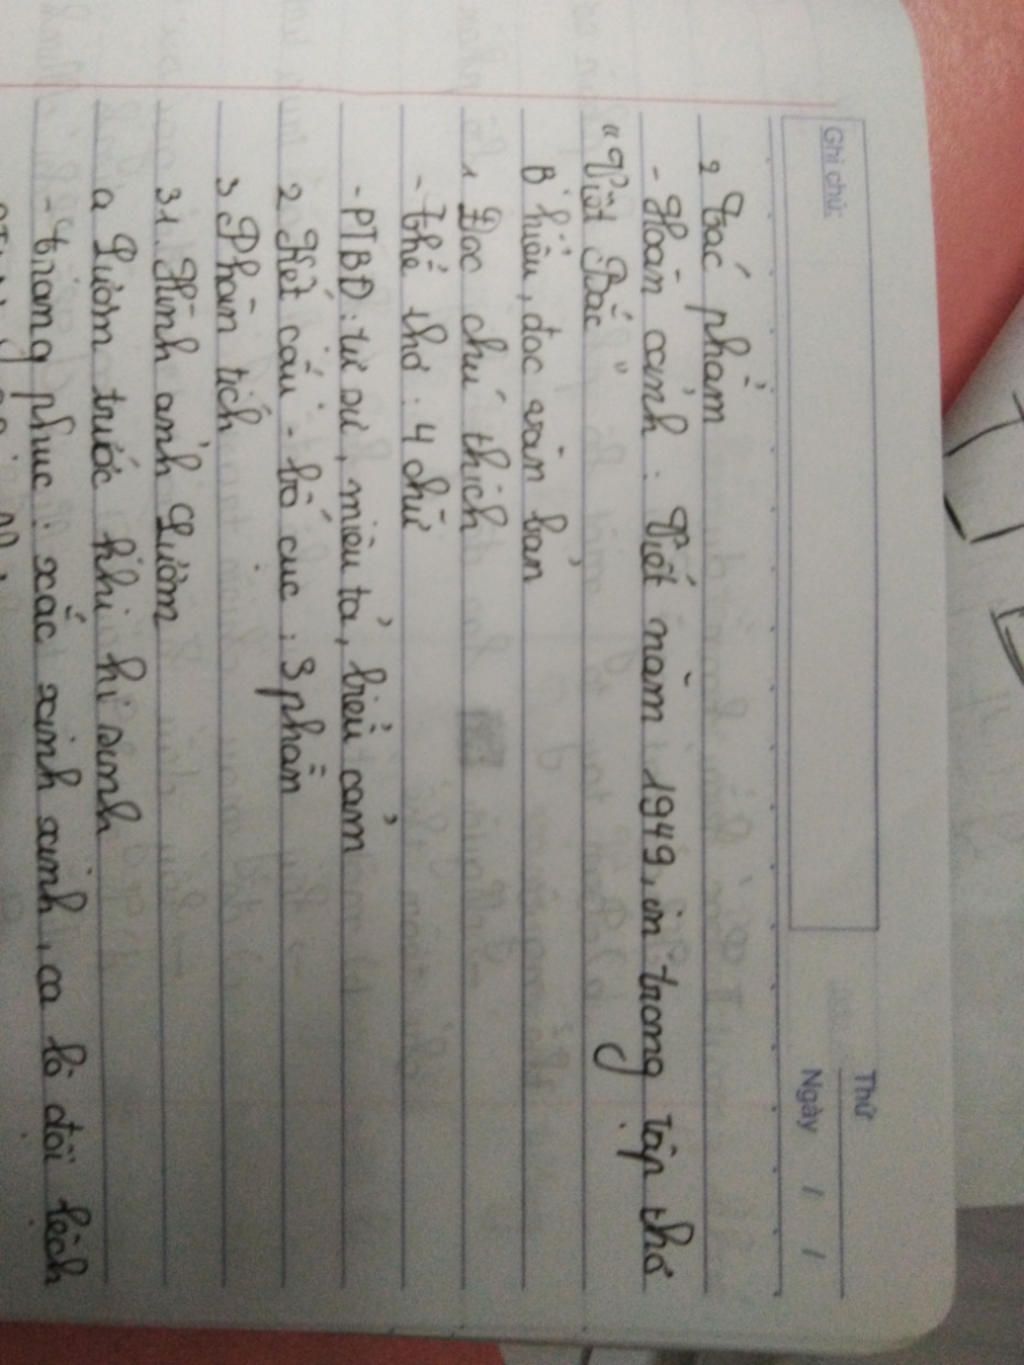 Ghi chú:
Thứ
Ngày / /
2 Tác phẩm
- Hoàn cảnh: Viết năm 1949, in trong tập thơ
"Việt Bắc"
B hiểu, đọc văn bản
1 Đọc chú thích
- thể thơ: 4 chữ
- PTBĐ: tự sự, miêu tả, biểu cảm
2 Kết cấu - bố cục: 3 phần
3 Phân tích
3 1. Hình ảnh Lượm
a Lượm trước khi hi sinh
- trang phục: xắc xinh xinh, ca lô đội lệch